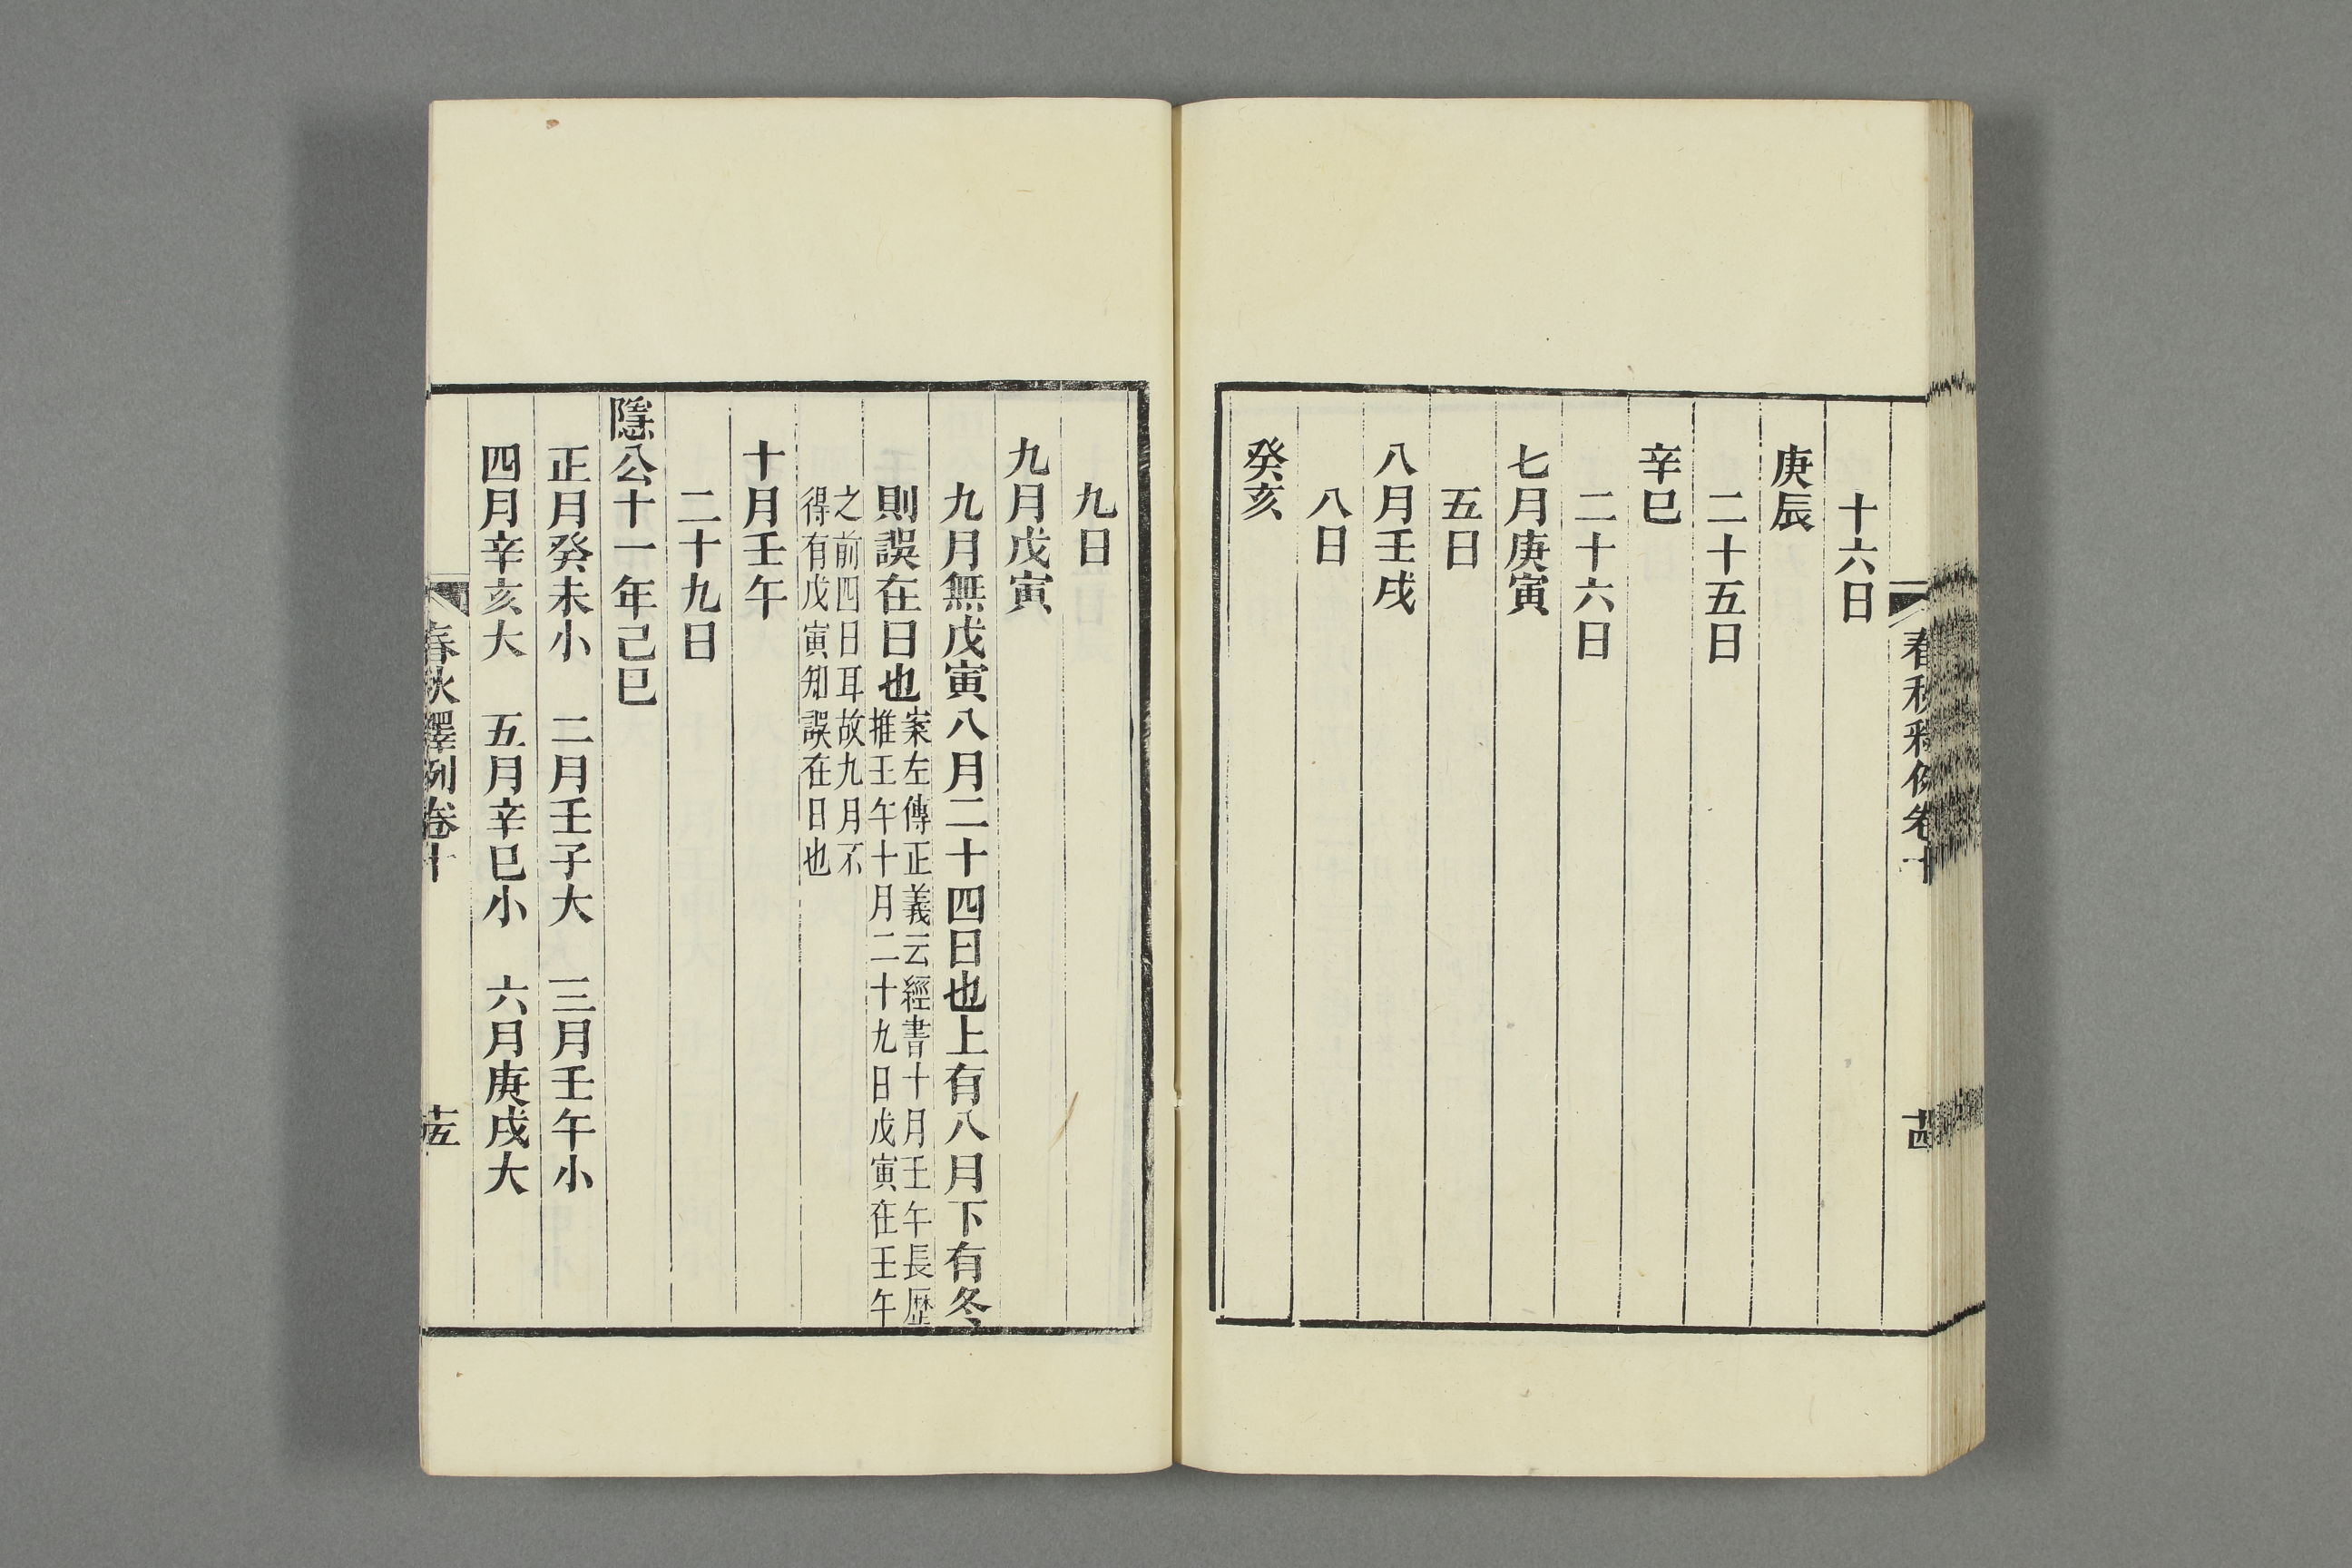 春秋釋例卷十
十四
十六日
庚辰
二十五日
辛巳
二十六日
七月庚寅
五日
八月壬戌
八日
癸亥
九日
九月戊寅
九月無戊寅八月二十四日也上有八月下有冬
則誤在日也案左傳正義云經書十月壬午長歷
推壬午十月二十九日戊寅在壬午
之前四日耳故九月不
得有戊寅知誤在日也
十月壬午
二十九日
隱公十一年己巳
正月癸未小　二月壬子大　三月壬午小
四月辛亥大　五月辛巳小　六月庚戌大
春秋釋例卷十
十五